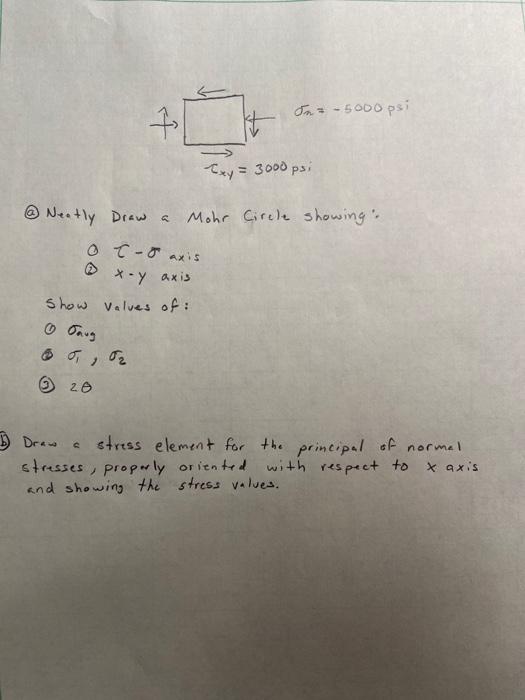 σn = -5000 psi
τxy = 3000 psi
ⓐ Neatly Draw a Mohr Circle showing:
① τ-σ axis
② x-y axis
Show values of:
① σavg
② σ1, σ2
③ 2θ
ⓑ Draw a stress element for the principal of normal
stresses, properly oriented with respect to x axis
and showing the stress values.